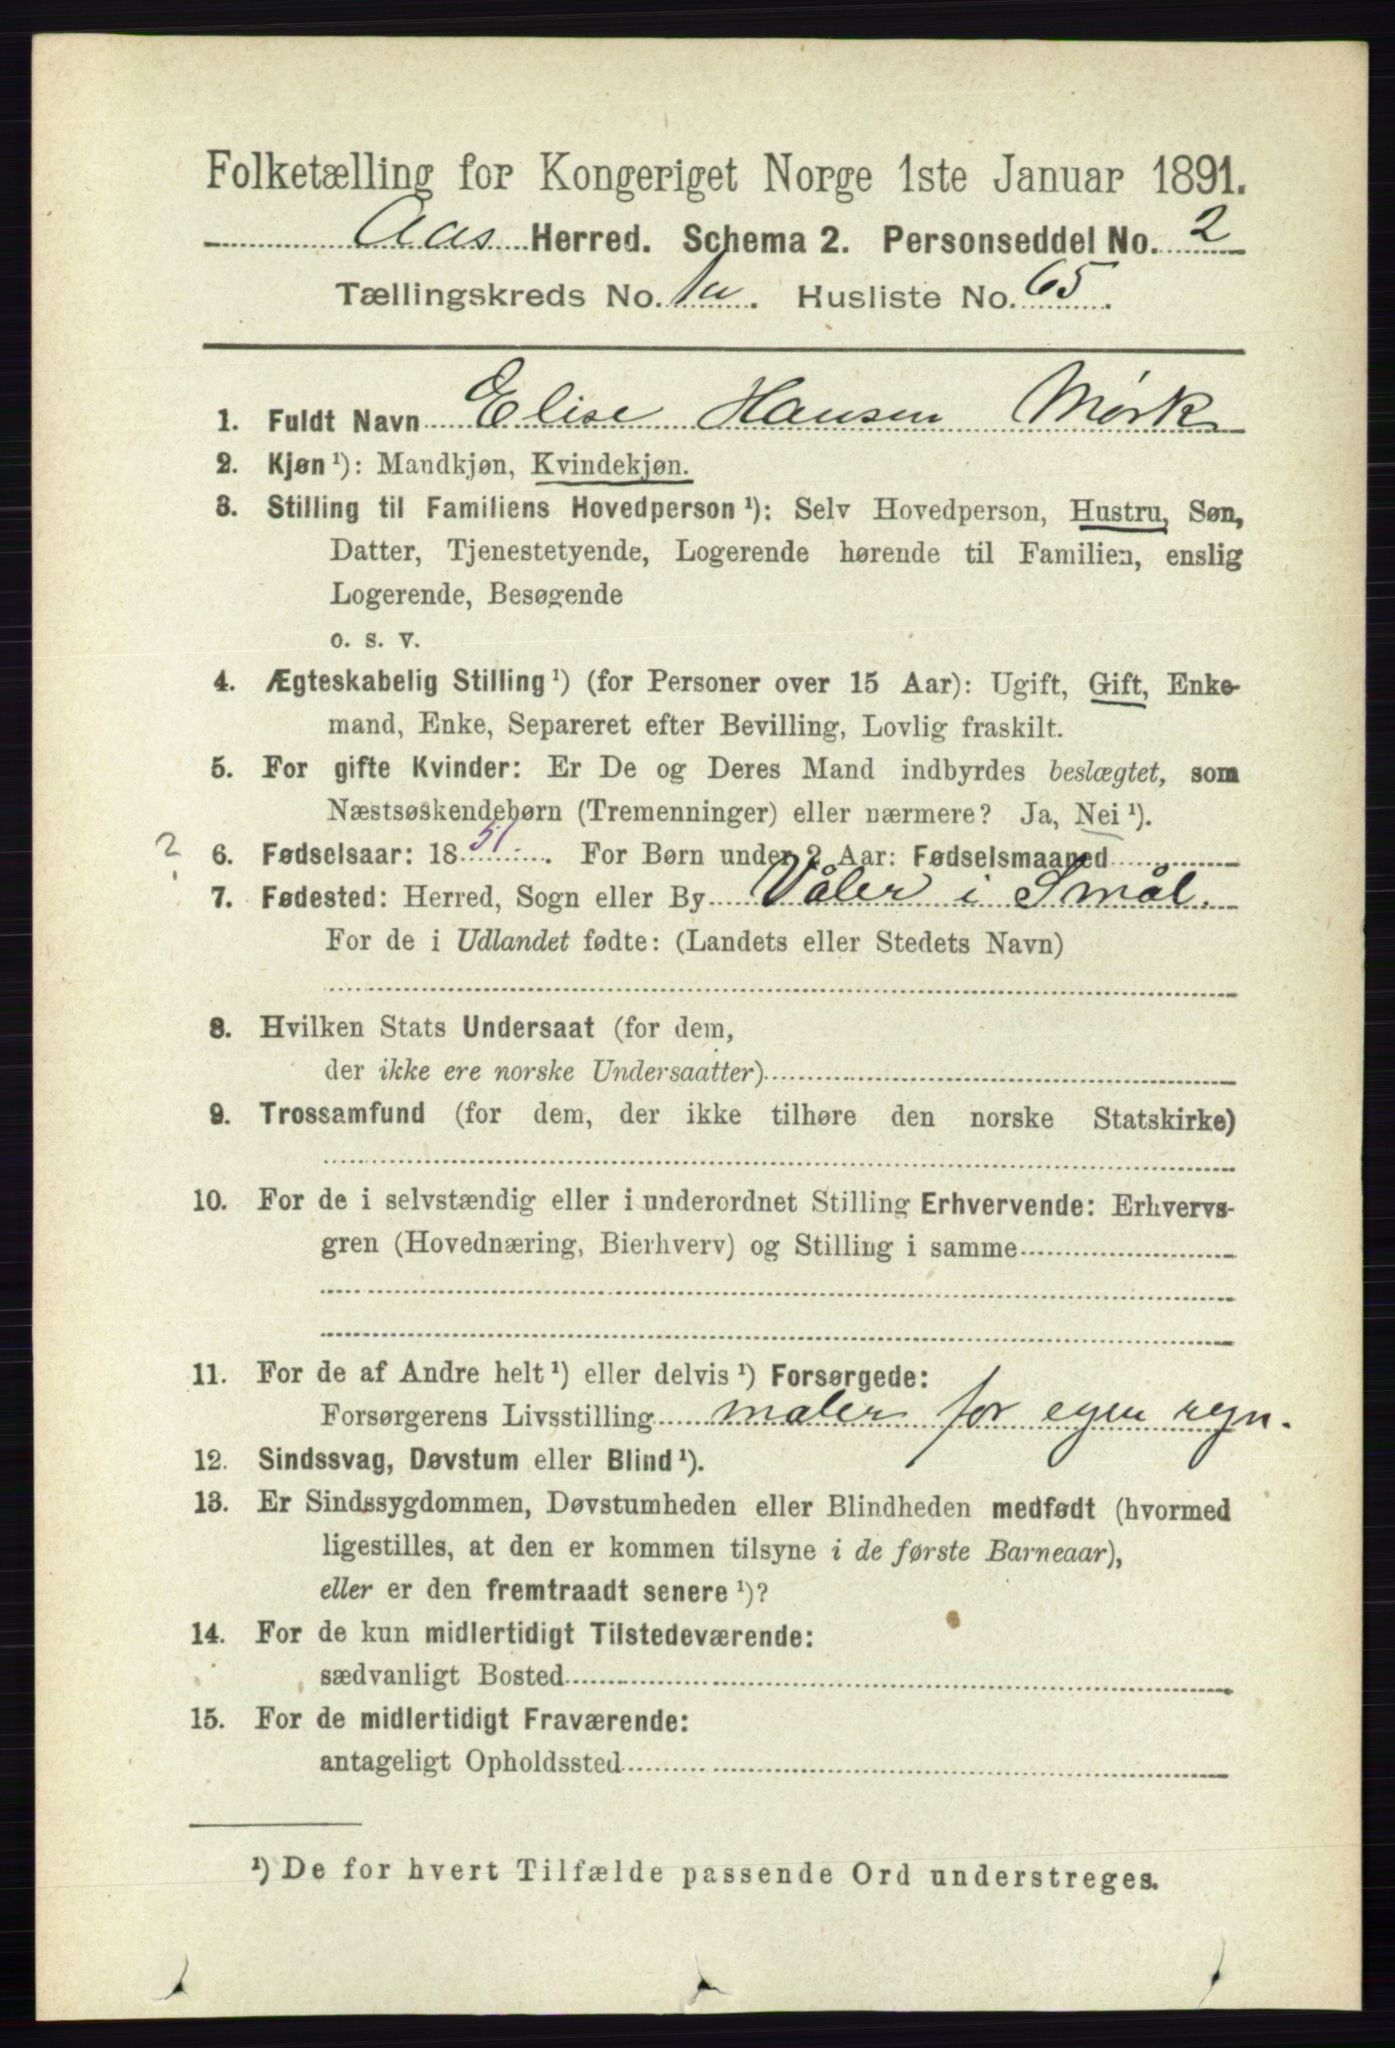 Folketælling for Kongeriget Norge 1ste Januar 1891.
Aas Herred. Schema 2. Personseddel No. 2
Tællingskreds No. 1a. Husliste No. 65.
1. Fuldt Navn Elise Hansen Mørk
2. Kjøn ¹): Mandkjøn, Kvindekjøn.
3. Stilling til Familiens Hovedperson ¹): Selv Hovedperson, Hustru, Søn,
Datter, Tjenestetyende, Logerende hørende til Familien, enslig
Logerende, Besøgende
o. s. v.
4. Ægteskabelig Stilling ¹) (for Personer over 15 Aar): Ugift, Gift, Enke-
mand, Enke, Separeret efter Bevilling, Lovlig fraskilt.
5. For gifte Kvinder: Er De og Deres Mand indbyrdes beslægtet, som
Næstsøskendebørn (Tremenninger) eller nærmere? Ja, Nei ¹).
? 6. Fødselsaar: 1851. For Børn under 2 Aar: Fødselsmaaned
7. Fødested: Herred, Sogn eller By Våler i Smål.
For de i Udlandet fødte: (Landets eller Stedets Navn)
8. Hvilken Stats Undersaat (for dem,
der ikke ere norske Undersaatter)
9. Trossamfund (for dem, der ikke tilhøre den norske Statskirke)
10. For de i selvstændig eller i underordnet Stilling Erhvervende: Erhvervs-
gren (Hovednæring, Bierhverv) og Stilling i samme
11. For de af Andre helt ¹) eller delvis ¹) Forsørgede:
Forsørgerens Livsstilling maler for egen regn.
12. Sindssvag, Døvstum eller Blind ¹).
13. Er Sindssygdommen, Døvstumheden eller Blindheden medfødt (hvormed
ligestilles, at den er kommen tilsyne i de første Barneaar),
eller er den fremtraadt senere ¹)?
14. For de kun midlertidigt Tilstedeværende:
sædvanligt Bosted
15. For de midlertidigt Fraværende:
antageligt Opholdssted
¹) De for hvert Tilfælde passende Ord understreges.